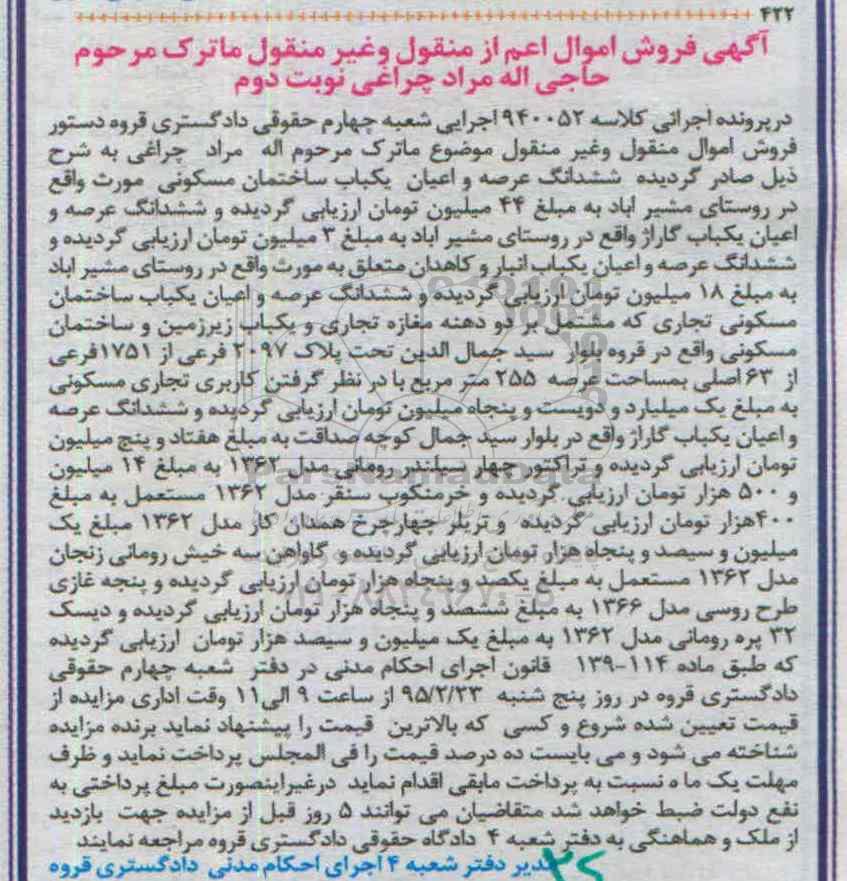 ۴۳۲
آگهی فروش اموال اعم از منقول وغیر منقول ماترک مرحوم
حاجی اله مراد چراغی نوبت دوم
درپرونده اجرائی کلاسه ۹۴۰۰۵۲ اجرایی شعبه چهارم حقوقی دادگستری قروه دستور
فروش اموال منقول وغیر منقول موضوع ماترک مرحوم اله مراد چراغی به شرح
ذیل صادر گردیده ششدانگ عرصه و اعیان یکباب ساختمان مسکونی مورث واقع
در روستای مشیر اباد به مبلغ ۴۴ میلیون تومان ارزیابی گردیده و ششدانگ عرصه و
اعیان یکباب گاراژ واقع در روستای مشیر اباد به مبلغ ۳ میلیون تومان ارزیابی گردیده و
ششدانگ عرصه و اعیان یکباب انبار و کاهدان متعلق به مورث واقع در روستای مشیر اباد
به مبلغ ۱۸ میلیون تومان ارزیابی گردیده و ششدانگ عرصه و اعیان یکباب ساختمان
مسکونی تجاری که مشتمل بر دو دهنه مغازه تجاری و یکباب زیرزمین و ساختمان
مسکونی واقع در قروه بلوار سید جمال الدین تحت پلاک ۲۰۹۷ فرعی از ۱۷۵۱فرعی
از ۶۳ اصلی بمساحت عرصه ۲۵۵ متر مربع با در نظر گرفتن کاربری تجاری مسکونی
به مبلغ یک میلیارد و دویست و پنجاه میلیون تومان ارزیابی گردیده و ششدانگ عرصه
و اعیان یکباب گاراژ واقع در بلوار سید جمال کوچه صداقت به مبلغ هفتاد و پنج میلیون
تومان ارزیابی گردیده و تراکتور چهار سیلندر رومانی مدل ۱۳۶۲ به مبلغ ۱۴ میلیون
و ۵۰۰ هزار تومان ارزیابی گردیده و خرمنکوب سنقر مدل ۱۳۶۲ مستعمل به مبلغ
۴۰۰هزار تومان ارزیابی گردیده و تریلر چهارچرخ همدان کار مدل ۱۳۶۲ مبلغ یک
میلیون و سیصد و پنجاه هزار تومان ارزیابی گردیده و گاواهن سه خیش رومانی زنجان
مدل ۱۳۶۲ مستعمل به مبلغ یکصد و پنجاه هزار تومان ارزیابی گردیده و پنجه غازی
طرح روسی مدل ۱۳۶۶ به مبلغ ششصد و پنجاه هزار تومان ارزیابی گردیده و دیسک
۳۲ پره رومانی مدل ۱۳۶۲ به مبلغ یک میلیون و سیصد هزار تومان ارزیابی گردیده
که طبق ماده ۱۱۴-۱۳۹ قانون اجرای احکام مدنی در دفتر شعبه چهارم حقوقی
دادگستری قروه در روز پنج شنبه ۹۵/۲/۲۳ از ساعت ۹ الی ۱۱ وقت اداری مزایده از
قیمت تعیین شده شروع و کسی که بالاترین قیمت را پیشنهاد نماید برنده مزایده
شناخته می شود و می بایست ده درصد قیمت را فی المجلس پرداخت نماید و ظرف
مهلت یک ما ه نسبت به پرداخت مابقی اقدام نماید درغیراینصورت مبلغ پرداختی به
نفع دولت ضبط خواهد شد متقاضیان می توانند ۵ روز قبل از مزایده جهت بازدید
از ملک و هماهنگی به دفتر شعبه ۴ دادگاه حقوقی دادگستری قروه مراجعه نمایند
مدیر دفتر شعبه ۴ اجرای احکام مدنی دادگستری قروه
ParsNamadData